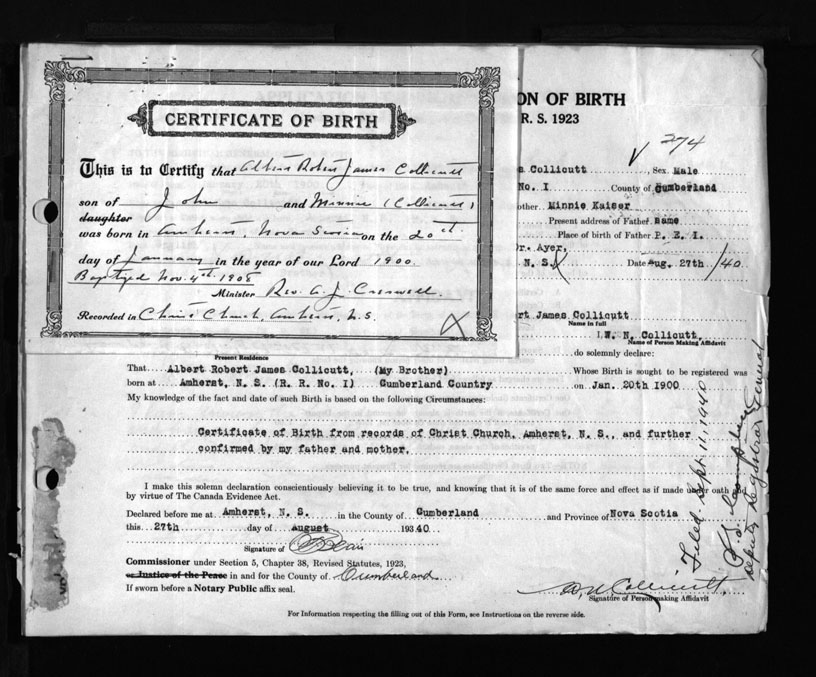 CERTIFICATE OF BIRTH
This is to Certify that Albert Robert James Collicutt
son of John and Minnie (Collicutt)
daughter
was born in Amherst, Nova Scotia on the 20th
day of January in the year of our Lord 1900.
Baptized Nov. 4th 1908
Minister Rev. A. J. Creswell.
Recorded in Christ Church, Amherst, N.S.
X
ON OF BIRTH
R. S. 1923
274
Collicutt , Sex Male
No. I County of Cumberland
other Minnie Kaiser
Present address of Father Same
Place of birth of Father P. E. I.
Dr. Ayer,
N. S. Date Aug. 27th /40
rt James Collicutt
Name in full
I, W. N. Collicutt,
Name of Person Making Affidavit
Present Residence do solemnly declare:
That Albert Robert James Collicutt, (My Brother) Whose Birth is sought to be registered was
born at Amherst, N. S. (R. R. No. I) Cumberland Country on Jan. 20th 1900
My knowledge of the fact and date of such Birth is based on the following Circumstances:
Certificate of Birth from records of Christ Church, Amherst, N. S., and further
confirmed by my father and mother.
I make this solemn declaration conscientiously believing it to be true, and knowing that it is of the same force and effect as if made under oath and
by virtue of The Canada Evidence Act.
Declared before me at Amherst, N. S. in the County of Cumberland and Province of Nova Scotia
this 27th day of August 193 40
Signature of
Commissioner under Section 5, Chapter 38, Revised Statutes, 1923,
or Justice of the Peace in and for the County of Cumberland
If sworn before a Notary Public affix seal.
W. N. Collicutt
Signature of Person making Affidavit
For Information respecting the filling out of this Form, see Instructions on the reverse side.
Filed Sept. 11, 1940
Deputy Registrar General